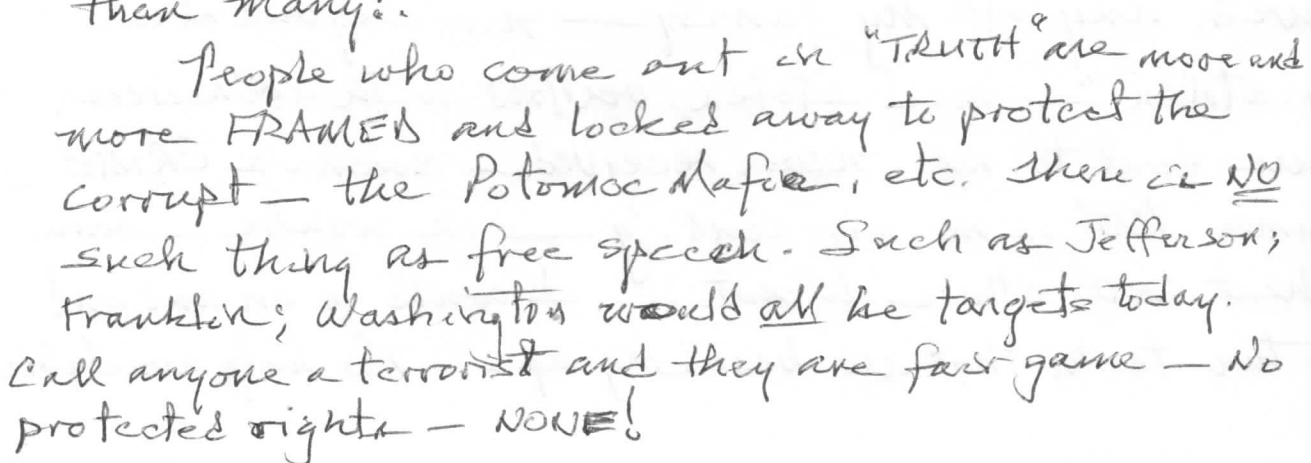 than many!.
People who come out in "TRUTH" are more and
more FRAMED and locked away to protect the
corrupt — the Potomoc Mafia, etc. There is NO
such thing as free speech. Such as Jefferson;
Franklin; Washington would all be targets today.
Call anyone a terrorist and they are fair game — No
protected rights — NONE!